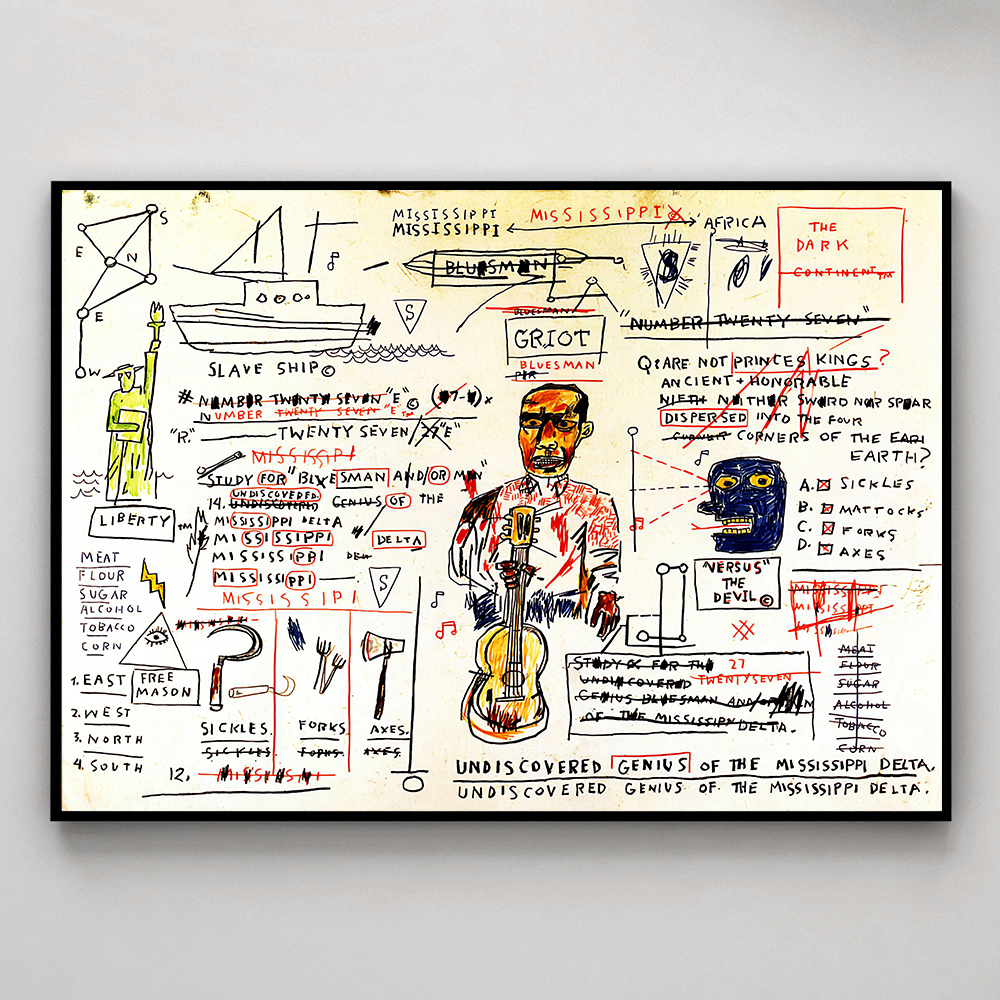 S
E
N
E
W
MISSISSIPPI
MISSISSIPPI
MISSISSIPPI
AFRICA
THE
DARK
CONTINENT™
BLUESMAN
S
S
BLUESMAN
GRIOT
BLUESMAN
SLAVE SHIP©
"NUMBER TWENTY SEVEN"
# NUMBER TWENTY SEVEN "E"©
NUMBER TWENTY SEVEN "E™
"R." TWENTY SEVEN/27"E"
MISSISSIPI
STUDY FOR "BLUESMAN AND/OR MAN"
UNDISCOVERED
14. UNDISCOVERED GENIUS OF THE
MISSISSIPPI DELTA
MISSISSIPPI DELTA
MISSISSIPPI
MISSISSIPPI
MISSISSIPI
S
LIBERTY™
MEAT
FLOUR
SUGAR
ALCOHOL
TOBACCO
CORN
FREE
MASON
1. EAST
2. WEST
3. NORTH
4. SOUTH
SICKLES. FORKS. AXES.
SICKLES FORKS. AXES.
12.
Q: ARE NOT PRINCES KINGS?
ANCIENT + HONORABLE
NIETH NEITHER SWORD NOR SPEAR
DISPERSED INTO THE FOUR
CORNERS OF THE EARI
EARTH?
A. SICKLES
B. MATTOCKS
C. FORKS
D. AXES
"VERSUS"
THE
DEVIL©
MISSISSIPPI
MISSISSIPPI
MEAT
FLOUR
SUGAR
ALCOHOL
TOBACCO
CORN
STUDY FOR THE 27
UNDISCOVERED TWENTYSEVEN
GENIUS BLUESMAN AND/OR MAN
OF THE MISSISSIPPI DELTA.
UNDISCOVERED GENIUS OF THE MISSISSIPPI DELTA.
UNDISCOVERED GENIUS OF THE MISSISSIPPI DELTA.